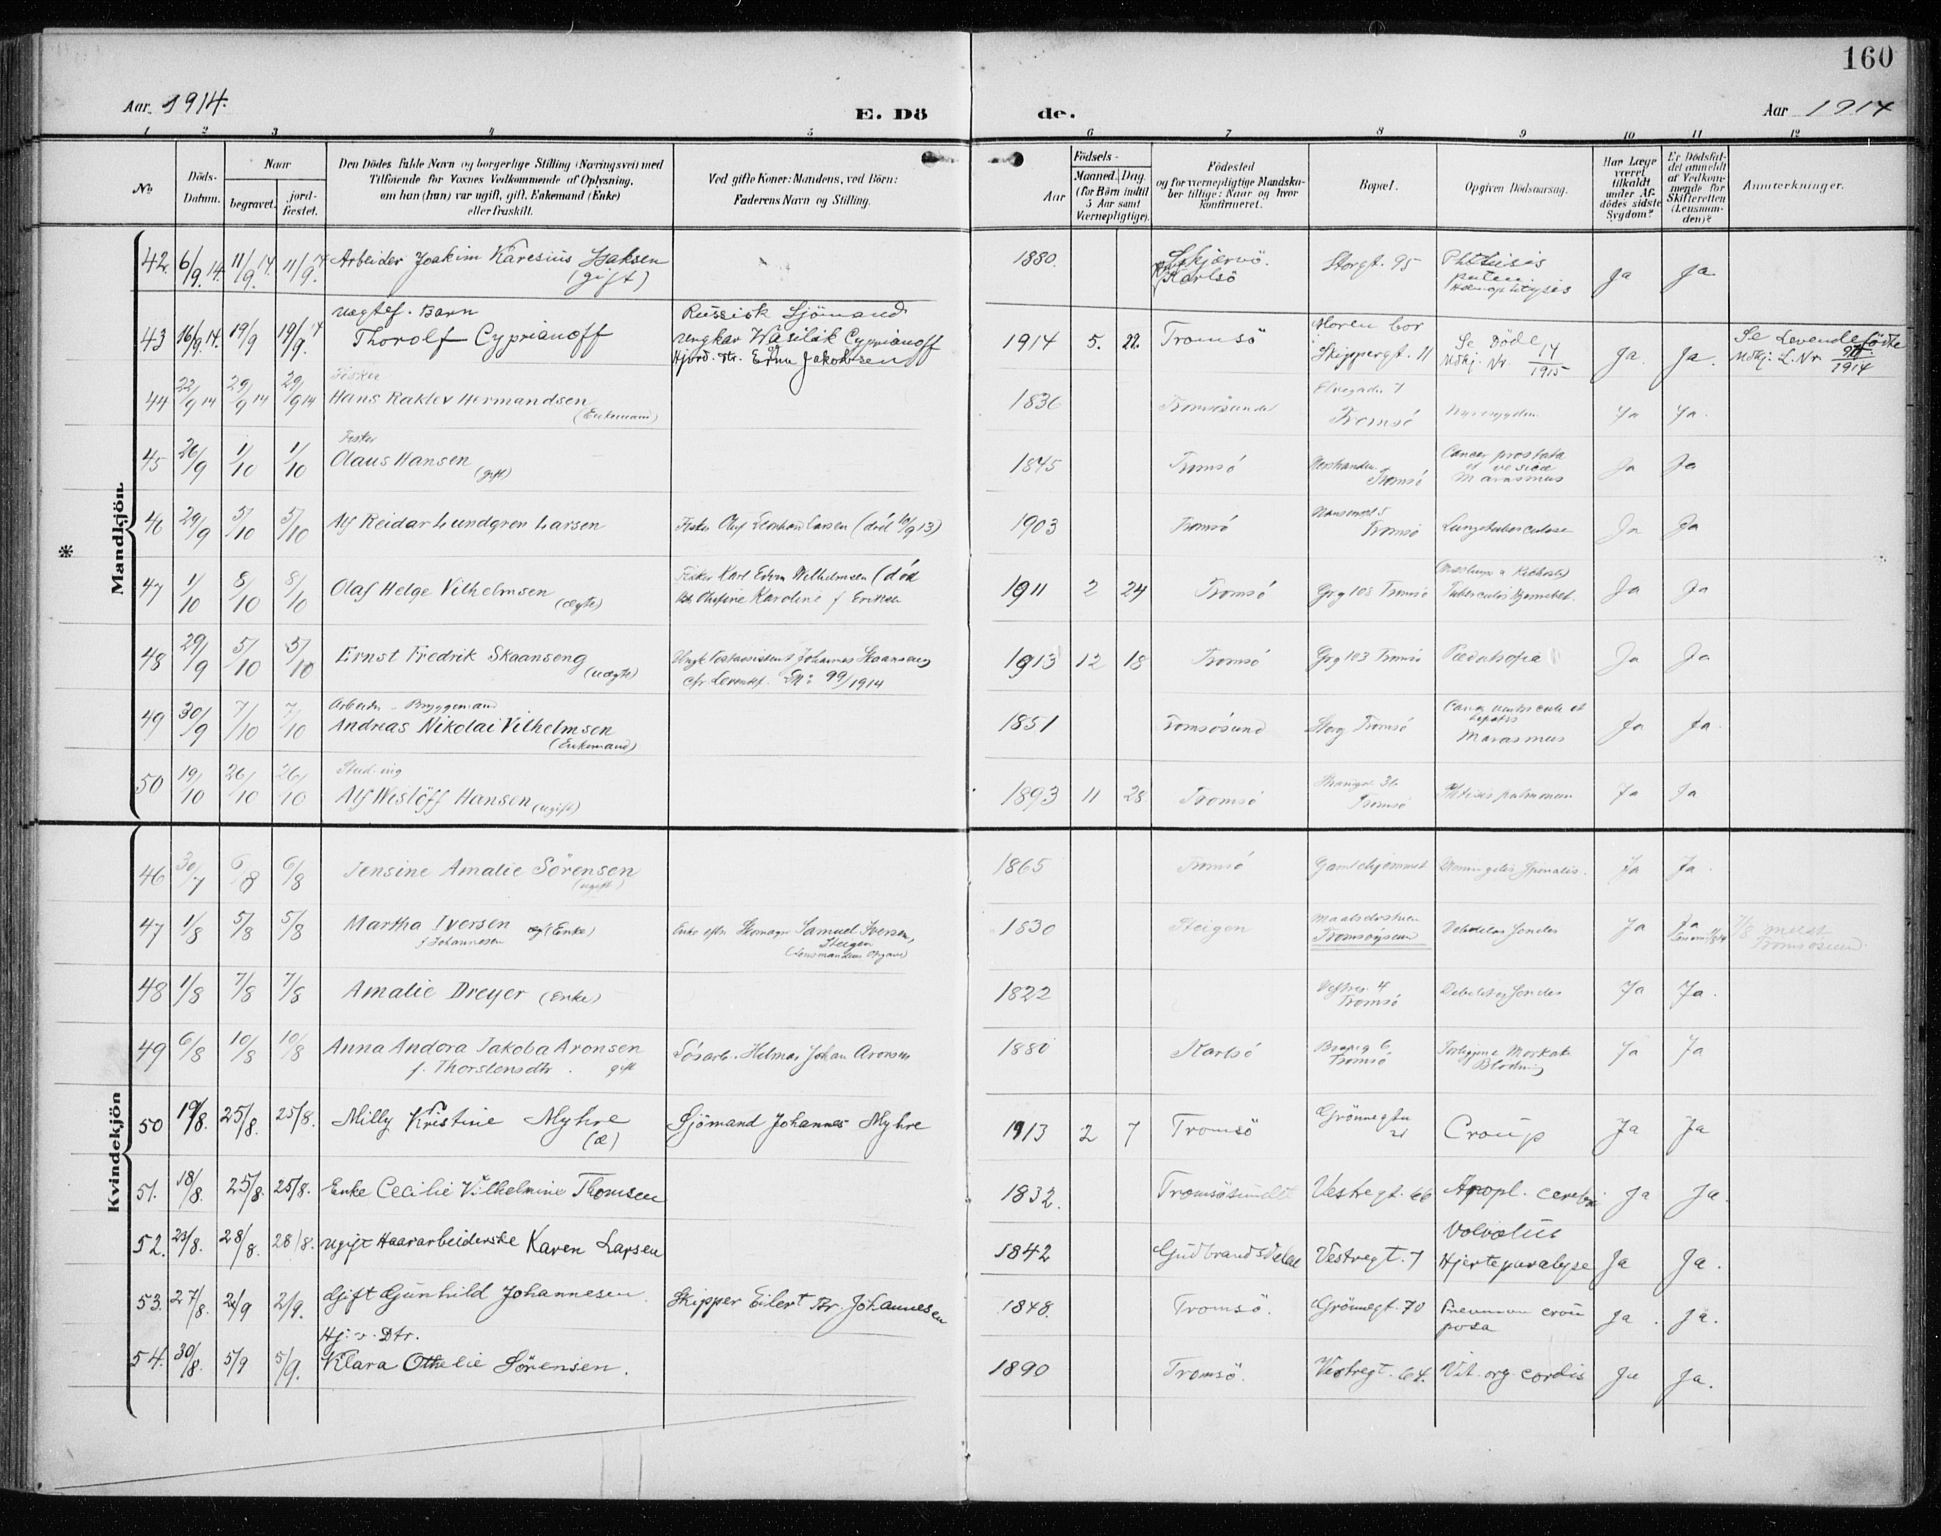 160
Aar 1914.
E. Dö
de.
Aar 1914
1 2 3 4 5 6 7 8 9 10 11 12
No
Döds-Datum.
Naar
begravet.
jord-fæstet.
Den Dödes fulde Navn og borgerlige Stilling (Næringsvei) med
Tilföiende for Voxnes Vedkommende af Oplysning,
om han (hun) var ugift, gift, Enkemand (Enke)
eller fraskilt.
Ved gifte Koner: Mandens, ved Börn:
Faderens Navn og Stilling.
Födsels-
Aar
Maaned. Dag.
(for Börn indtil
5 Aar samt
Værnepligtige).
Födested
og for værnepligtige Mandskaber tillige: Naar og hvor
konfirmeret.
Bopæl.
Opgiven Dödsaarsag.
Har Læge
været
tilkaldt
under Afdödes sidste
Sygdom?
Er Dödsfaldet anmeldt
af Vedkommende for
Skifteretten
(Lensmanden)?
Anmærkninger.
Mandkjön
42. 6/9.14. 11/9.14. 11/9.14 Arbeider Joakim Karesius Isaksen (gift) 1880. Skjærvö. Karlsö Storgt. 95 Phthisis Ja Ja
43 16/9.14. 19/9 19/9.14 uægtef. Barn Thorolf Cyprianoff Russisk Sjömand ungkar Wasilak Cyprianoff og Jakobsen 1914 5. 22. Tromsö Moren bor Skippergt. 11 Se Döde Udkj. Nr. 14/1915 Ja. Ja. Se Levendefödte Udkj. L. Nr. 1914
44 22/9 14 29/9 14 29/9 14 Fisker Hans Raklev Hermandsen (Enkemand) 1836 Tromsösundet 7 Tromsö Ja Ja.
45 26/9 1/10 1/10 Fisker Olaus Hansen (gift) 1845 Tromsö Tromsö Cancer prostata et vesica Marasmus Ja Ja
46 29/9 5/10 5/10 Alf Reidar Lundgren Larsen Fisker Larsen (död 10/9 13) 1903 Tromsö Tromsö Lungetuberculose Ja Ja
*
47 1/10 8/10 8/10 Olaf Helge Vilhelmsen (ægte) Fisker Karl Edvin Wilhelmsen (död Karoline f Eriksen 1911 2 24 Tromsö Grg 103 Tromsö Ja Ja
48 29/9 5/10 5/10 Ernst Fredrik Skaanseng (uægte) Ungk Postassistent Johannes Skaanseng cfr Levendef. No: 99/1914 1913 12 18 Tromsö Grg 103 Tromsö Pædatrofia Ja Ja
49 30/9 7/10 7/10 Arbeider - Bryggemand Andreas Nikolai Vilhelmsen (Enkemand) 1851 Tromsösund Storg Tromsö Marasmus Ja Ja.
50 19/10 26/10 26/10 Stud. ing Alf Weslöff Hansen (ugift) 1893 11 28 Tromsö Tromsö Phtisis pulmonum Ja Ja
Kvindekjön
46 30/7 6/8 6/8 Jensine Amalie Sörensen (ugift) 1865 Tromsö Gamlehjemmet Ja Ja.
47 1/8 5/8 5/8 Martha Iversen f Johannesen (Enke) Enke efter Samuel Iversen, Steigen (Lensmandens Opgave) 1830 Steigen Tromsöysun Ja Ja 7/8 meldt Tromsösund
48 1/8 7/8 7/8 Amalie Dreyer (Enke) 1822 4 Tromsö Ja Ja.
49 6/8 10/8 10/8 Anna Andora Jakoba Aronsen f. Thorstensdtr. gift Lösarb. Helmar Johan Aronsen 1880 Karlsö 6 Tromsö Ja Ja
50 19/8. 25/8. 25/8. Milly Kristine Myhre (æ) Sjömand Johannes Myhre 1913 2 7 Tromsö Grönnegtn 21 Croup Ja Ja
51. 18/8. 25/8. 25/8. Enke Cecilie Vilhelmine Thomsen 1832. Tromsösundet Vestregt. 66 Apopl. cerebri Ja Ja.
52. 23/8. 28/8. 28/8. ugift Haararbeiderske Karen Larsen 1842 Gudbrandsdalen Vestregt. 7 Volvolus Hjerteparalyse Ja Ja.
53. 27/8. 2/9 2/9. Gift Gunhild Johannesen. Skipper Eilert Br. Johannesen 1848. Tromsö. Grönnegt. 70 Pneumon crouposa Ja. Ja.
54. 30/8. 5/9 5/9. Hj. v. Dtr. Klara Othelie Sörensen. 1890 Tromsö. Vestregt. 64. Vit. org. cordis Ja Ja.